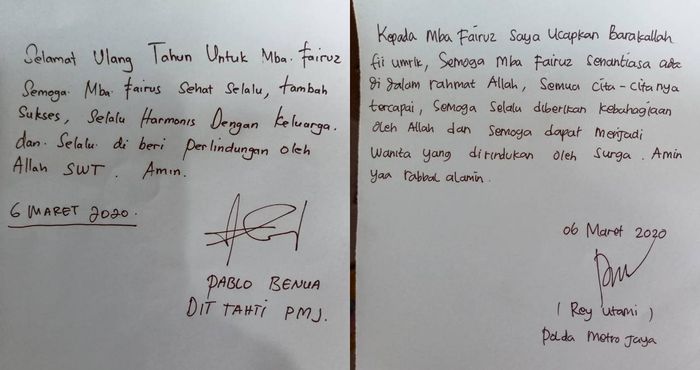 Selamat Ulang Tahun Untuk Mba. Fairuz
Semoga Mba. Fairus Sehat Selalu, tambah
Sukses, Selalu Harmonis Dengan Keluarga.
dan Selalu di beri Perlindungan oleh
Allah SWT. Amin.
6 MARET 2020.
PABLO BENUA
DIT TAHTI PMJ.
Kepada Mba Fairuz Saya Ucapkan Barakallah
fii umrik, Semoga Mba Fairuz Senantiasa
di dalam rahmat Allah, Semua Cita-Citanya
tercapai, Semoga Selalu diberikan Kebahagiaan
oleh Allah dan Semoga dapat menjadi
Wanita yang dirindukan oleh Surga. Amin
yaa rabbal alamin.
06 Maret 2020
( Rey Utami )
Polda Metro Jaya